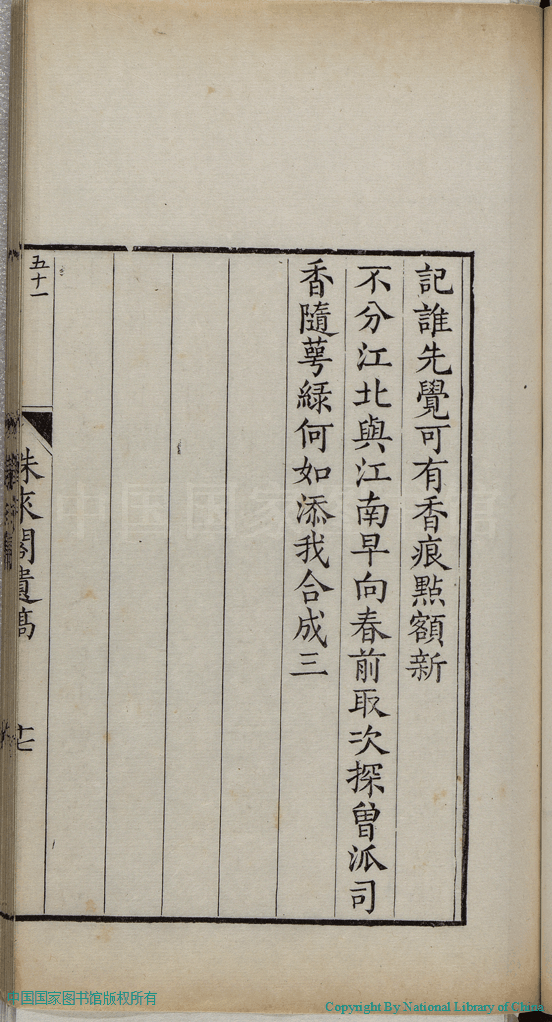 記誰先覺可有香痕點額新
不分江北與江南早向春前取次探曾派司
香隨萼綠何如添我合成三
五十一
閣遺稿
中国国家图书馆
中国国家图书馆版权所有
Copyright By National Library of China